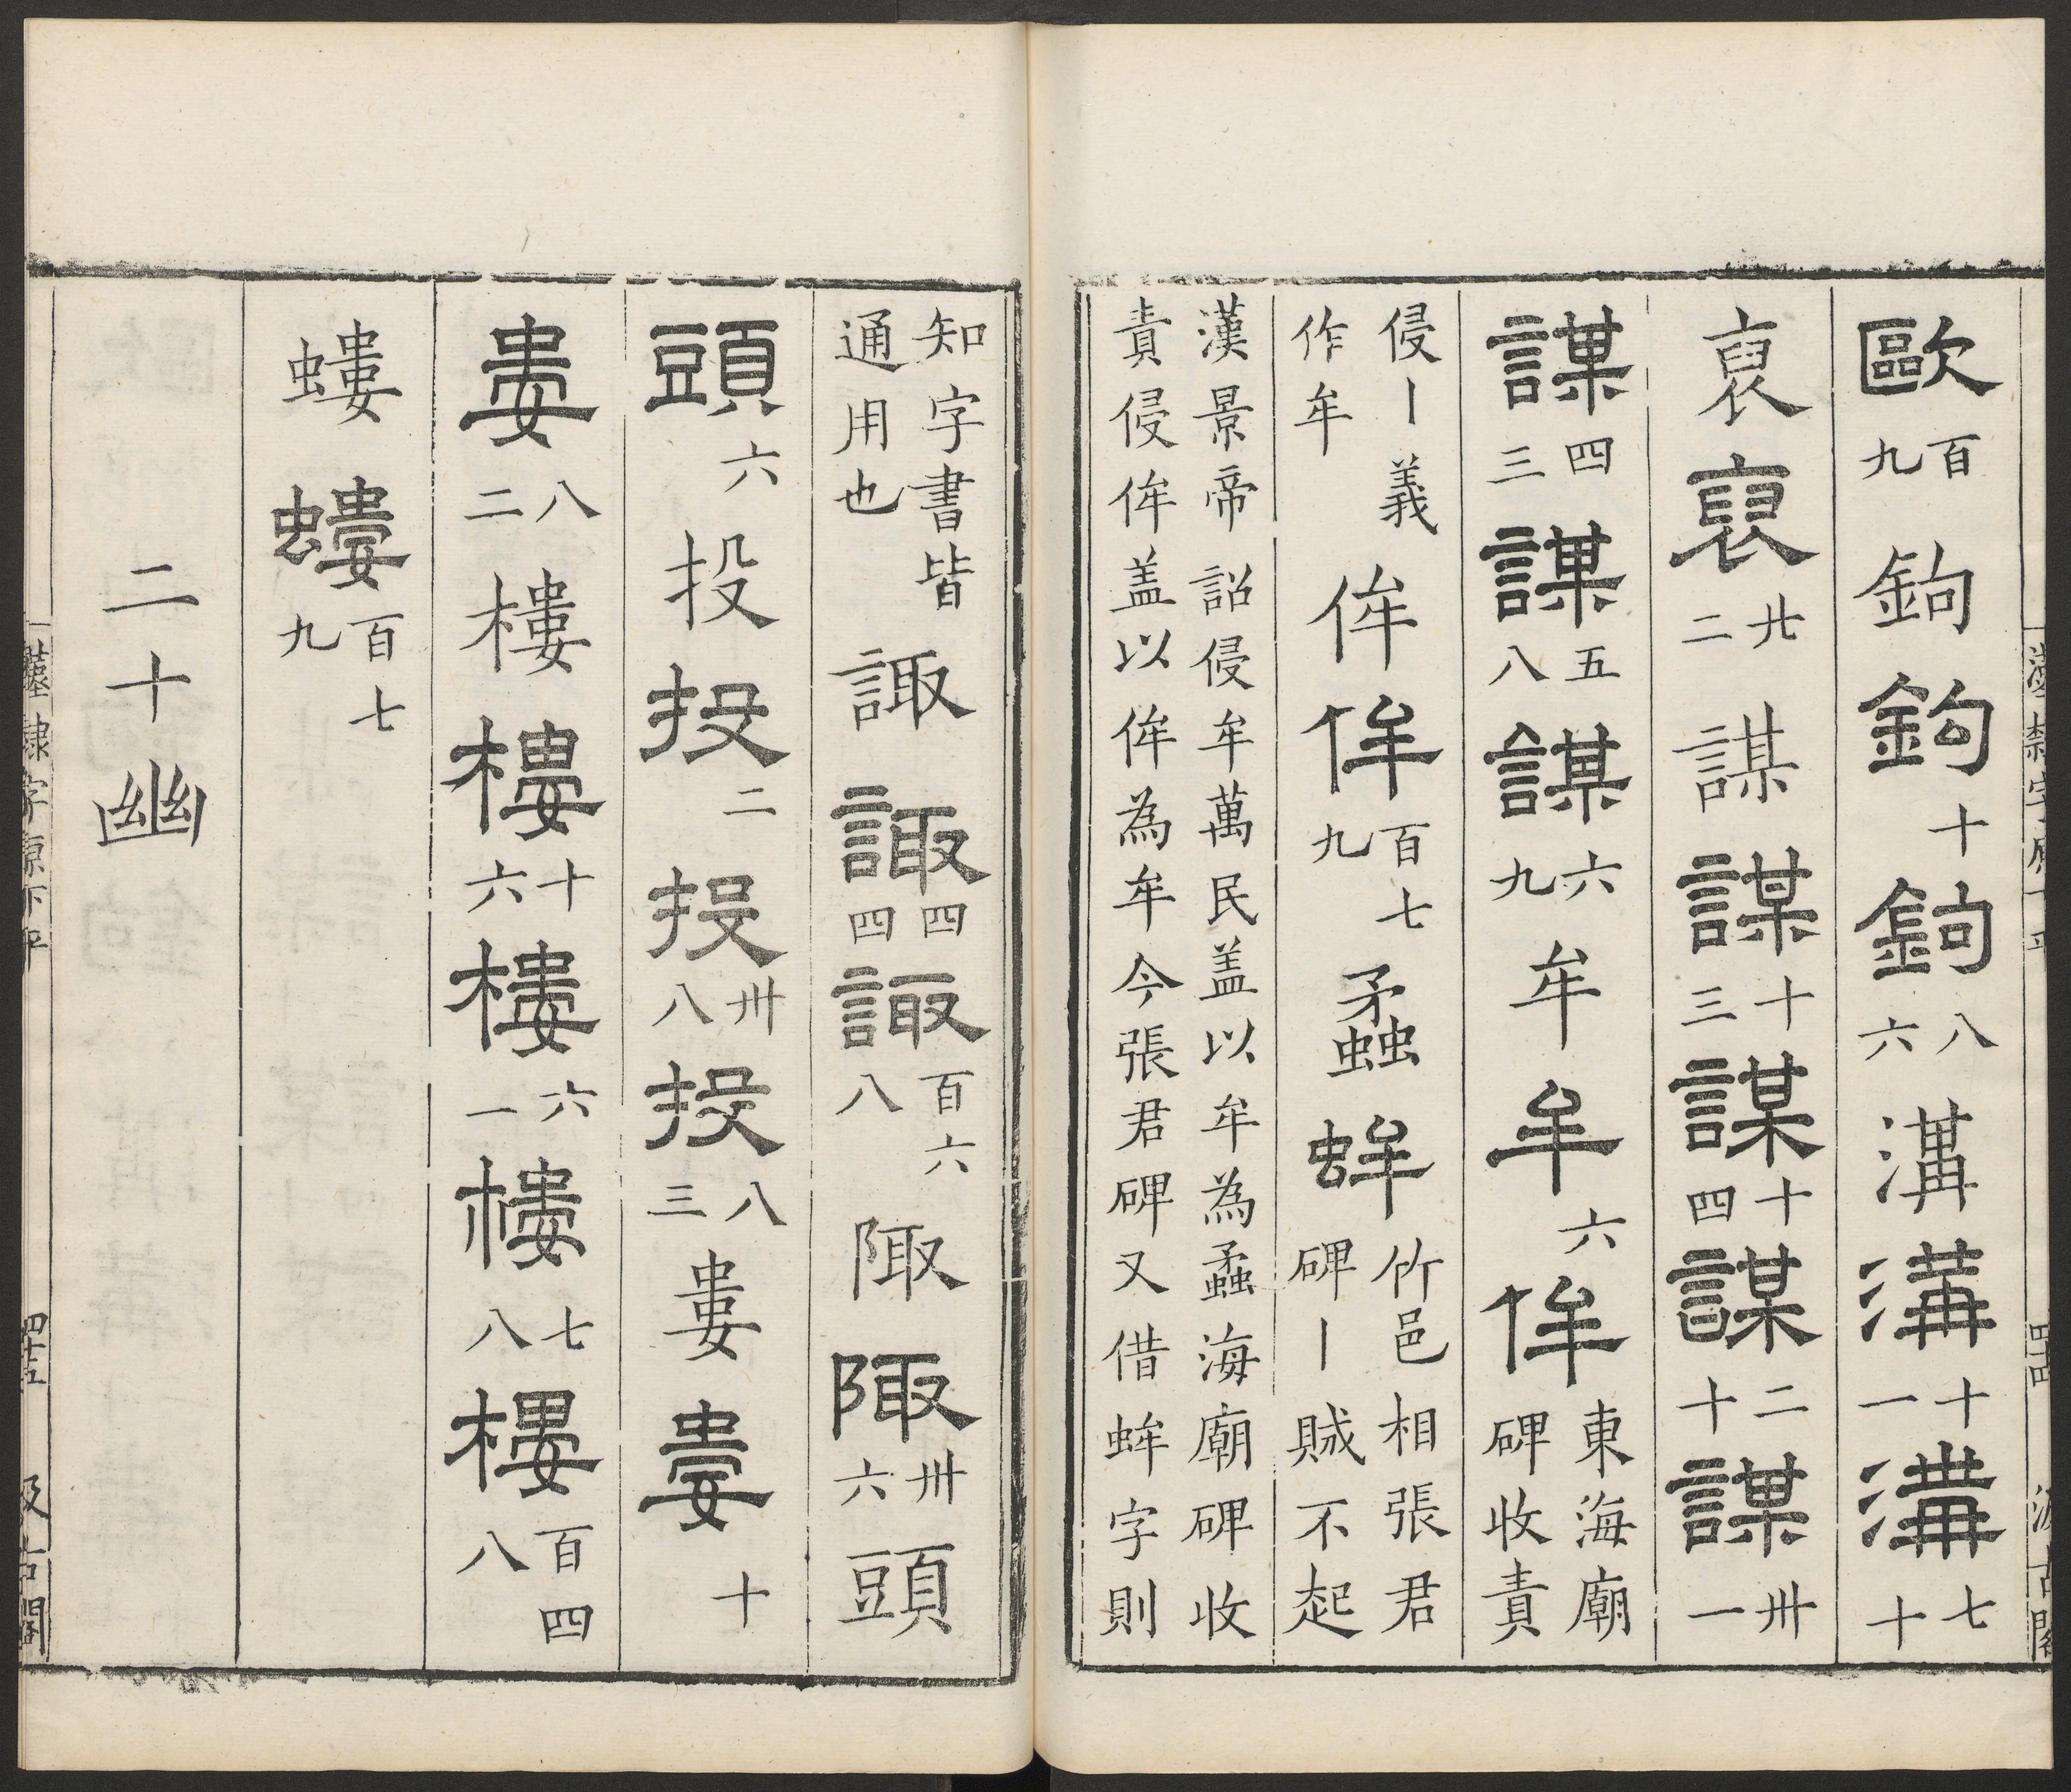 歐百九鉤鉤十鉤八六溝溝十一溝七十
裒裒廿二謀謀十三謀十四謀二十謀卅一
謀四三謀五八謀六九牟牟六侔東海廟碑收責
侵丨義作牟侔侔百七九蟊蛑竹邑相張君碑丨賊不起
漢景帝詔侵牟萬民盖以牟為蟊海廟碑收
責侵侔盖以侔為牟今張君碑又借蛑字則
漢隸字源下平
四十四
汲古閣
知字書皆通用也諏諏四四諏百六八陬陬卅六頭
頭六投投二投卅八投八三婁婁十
婁八二樓樓十六樓六一樓七八樓百四八
螻螻百七九
二十幽
漢隸字源下平
四十五
汲古閣